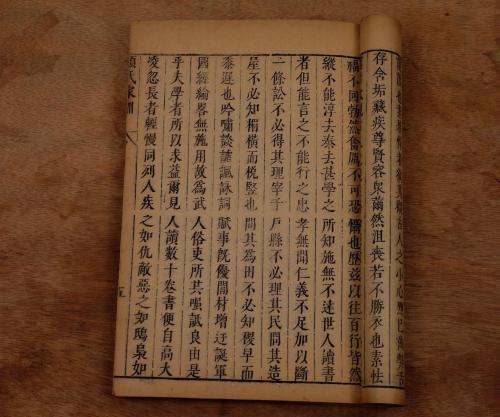 存含垢藏疾尊賢容衆薾然沮喪若不勝衣也素怯
福不回勃然奮厲不可恐懾也歷茲以往百行皆然
縱不能淳去泰去甚學之所知施無不達世人讀書
者但能言之不能行之忠孝無聞仁義不足加以斷
一條訟不必得其理宰千戶縣不必理其民問其造
屋不必知楣橫而梲豎也問其爲田不必知稷早而
黍遲也吟嘯談謔諷詠詞賦事旣優閒材增迂誕軍
國經綸畧無施用故爲武人俗吏所共嗤詆良由是
乎夫學者所以求益爾見人讀數十卷書便自高大
凌忽長者輕慢同列人疾之如仇敵惡之如鴟梟如
顏氏家訓 五